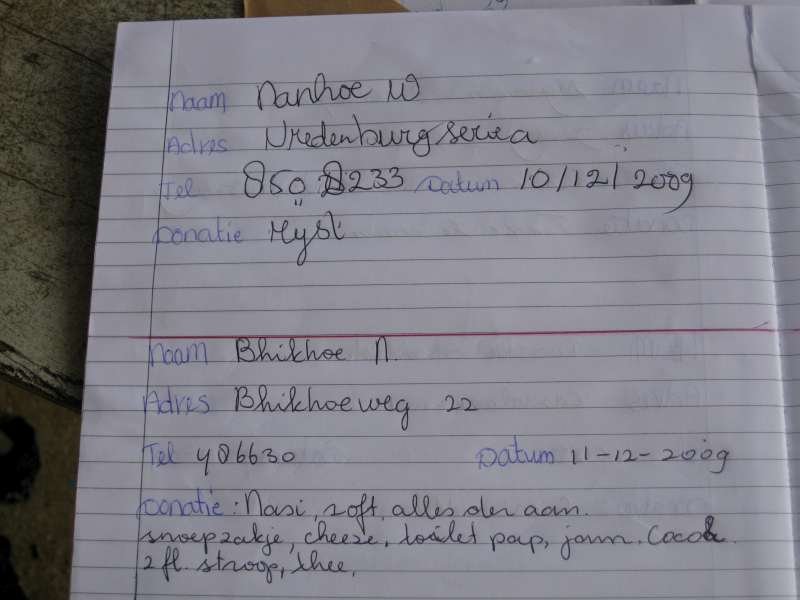 Naam Nanhoe W
Adres Vredenburg serie a
Tel 8508233 Datum 10/12/2009
Donatie Ryst
Naam Bhikhoe N.
Adres Bhikhoeweg 22
Tel 486630 Datum 11-12-2009
Donatie: Nasi, soft, alles der aan.
snoepzakje, cheese, toilet pap, jam. Coco
2 fl. stroop, thee,